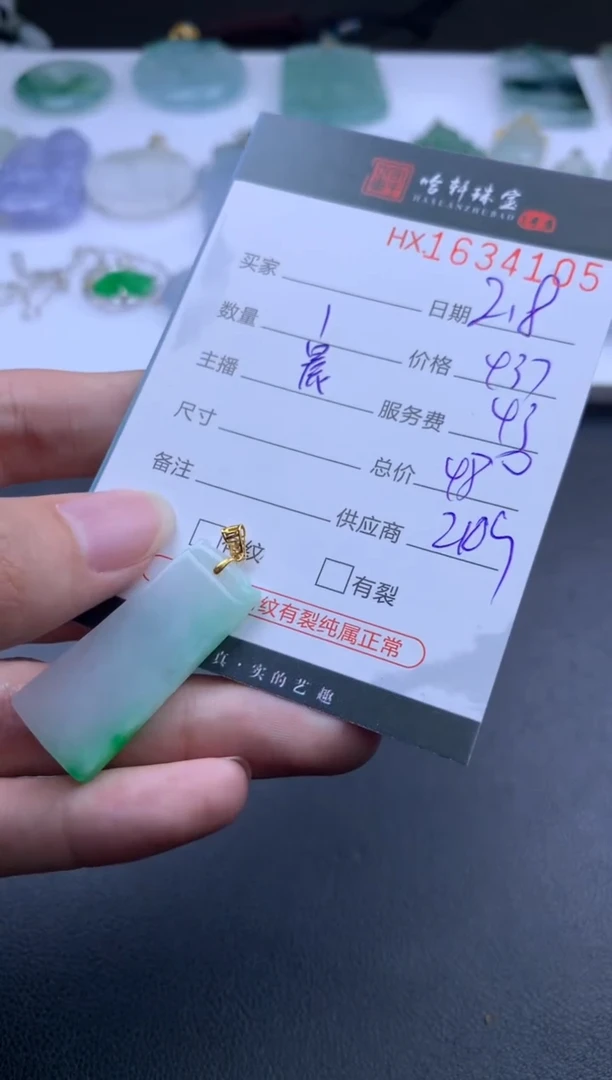 哈轩珠宝
HAXUANZHUBAO
HX1634105
买家 日期 2.8
数量 1 价格 437
主播 晨 服务费 43
尺寸 总价 480
备注 供应商 209
纹 有裂
纹有裂纯属正常
真·实的艺趣